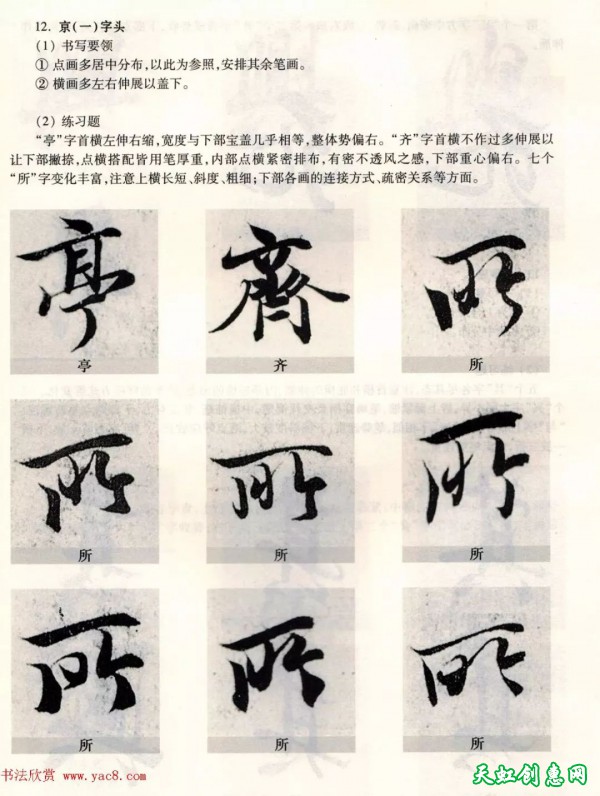 12. 京(一)字头
(1) 书写要领
① 点画多居中分布,以此为参照,安排其余笔画。
② 横画多左右伸展以盖下。
(2) 练习题
“亭”字首横左伸右缩,宽度与下部宝盖几乎相等,整体势偏右。“齐”字首横不作过多伸展以
让下部撇捺,点横搭配皆用笔厚重,内部点横紧密排布,有密不透风之感,下部重心偏右。七个
“所”字变化丰富,注意上横长短、斜度、粗细;下部各画的连接方式、疏密关系等方面。
亭 齊 所
亭 齐 所
所 所 所
所 所 所
所 所 所
所 所 所
书法欣赏 www.yac8.com 天虹创意网